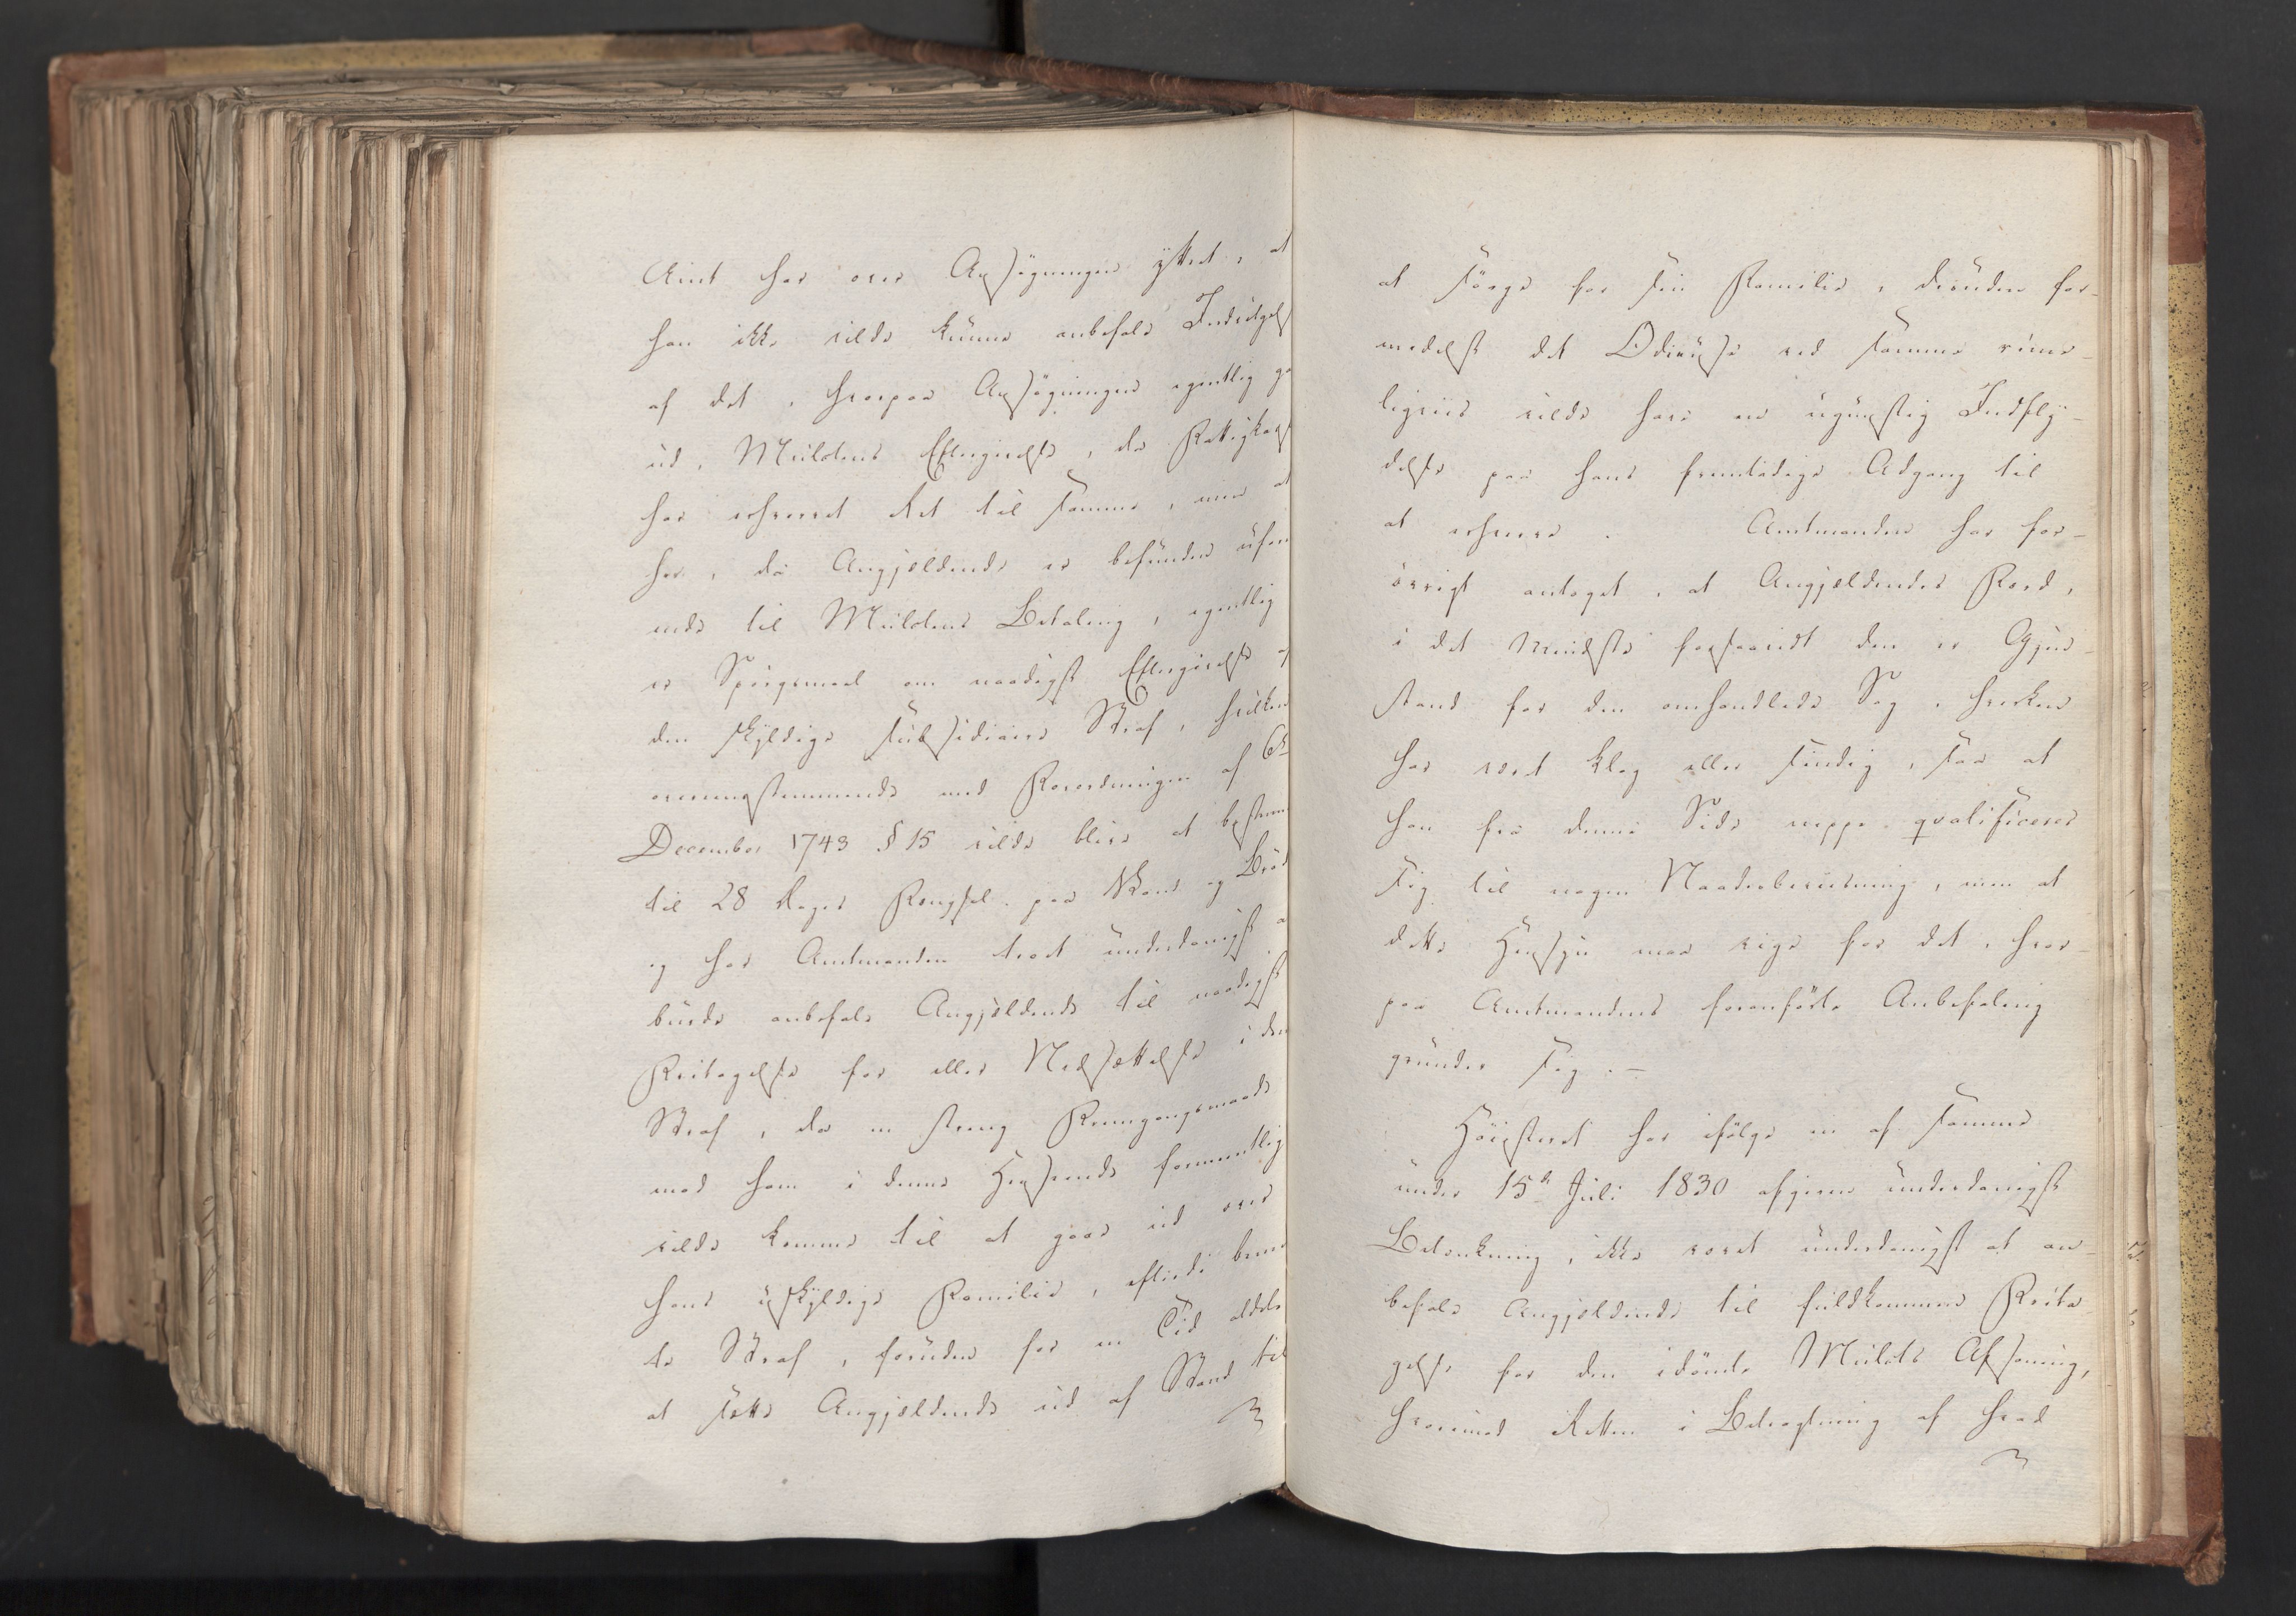 Amt har over Ansøgningen yttret, at
han ikke vilde kunne anbefale Indvilgelse
af det, hvorpaa Ansøgningen egentlig gaaer
ud, Mulctens Eftergivelse, da Fattigkassen
har erhvervet Ret til samme, men at
her, da Angjeldende er befunden uformu-
ende til Mulctens Betaling, egentlig
er Spørgsmaal om naadigst Eftergivelse af
den skyldige subsidiaire Straf, hvilken
overeensstemmende med Forordningen af 6te
December 1743 § 15 vilde blive at bestemme
til 28 Dages Fængsel paa Vand og Brød
og har Amtmanden troet underdanigst at
burde anbefale Angjeldende til naadigst
Fritagelse for eller Nedsættelse i den
Straf, da en streng Fremgangsmaade
mod ham i denne Henseende formeentlig
vilde komme til at gaae ud over
hans uskyldige Familie, eftersom benævn-
te Straf, foruden for en Tid aldeles
at sætte Angjeldende ud af Stand til
at sørge for sin Familie, desuden for-
medelst det Odieuse ved samme rime-
ligviis vilde have en ugunstig Indfly-
delse paa hans fremtidige Adgang til
at erhverve. Amtmanden har for-
øvrigt antaget, at Angjeldendes Færd,
i det Mindste forsaavidt den er Gjen-
stand for den omhandlede Sag, hverken
har været klog eller sindig, saa at
han fra denne Side neppe qvalificerer
sig til nogen Naadesbeviisning, men at
dette Hensyn maa vige for det, hvor-
paa Amtmandens foranførte Anbefaling
grunder sig.-
Høiesteret har ifølge en af samme
under 15de Juli 1830 afgiven underdanigst
Betænkning, ikke vovet underdanigst at an-
befale Angjeldende til fuldkommen Frita-
gelse for den idømte Mulcts Afsoning,
hvorimod Retten i Betragtning af hvad